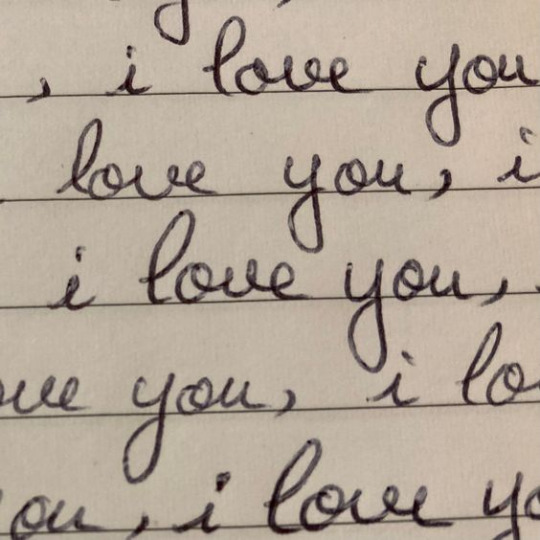 , i love you
love you, i
i love you,
ove you, i lo
ou, i love yo